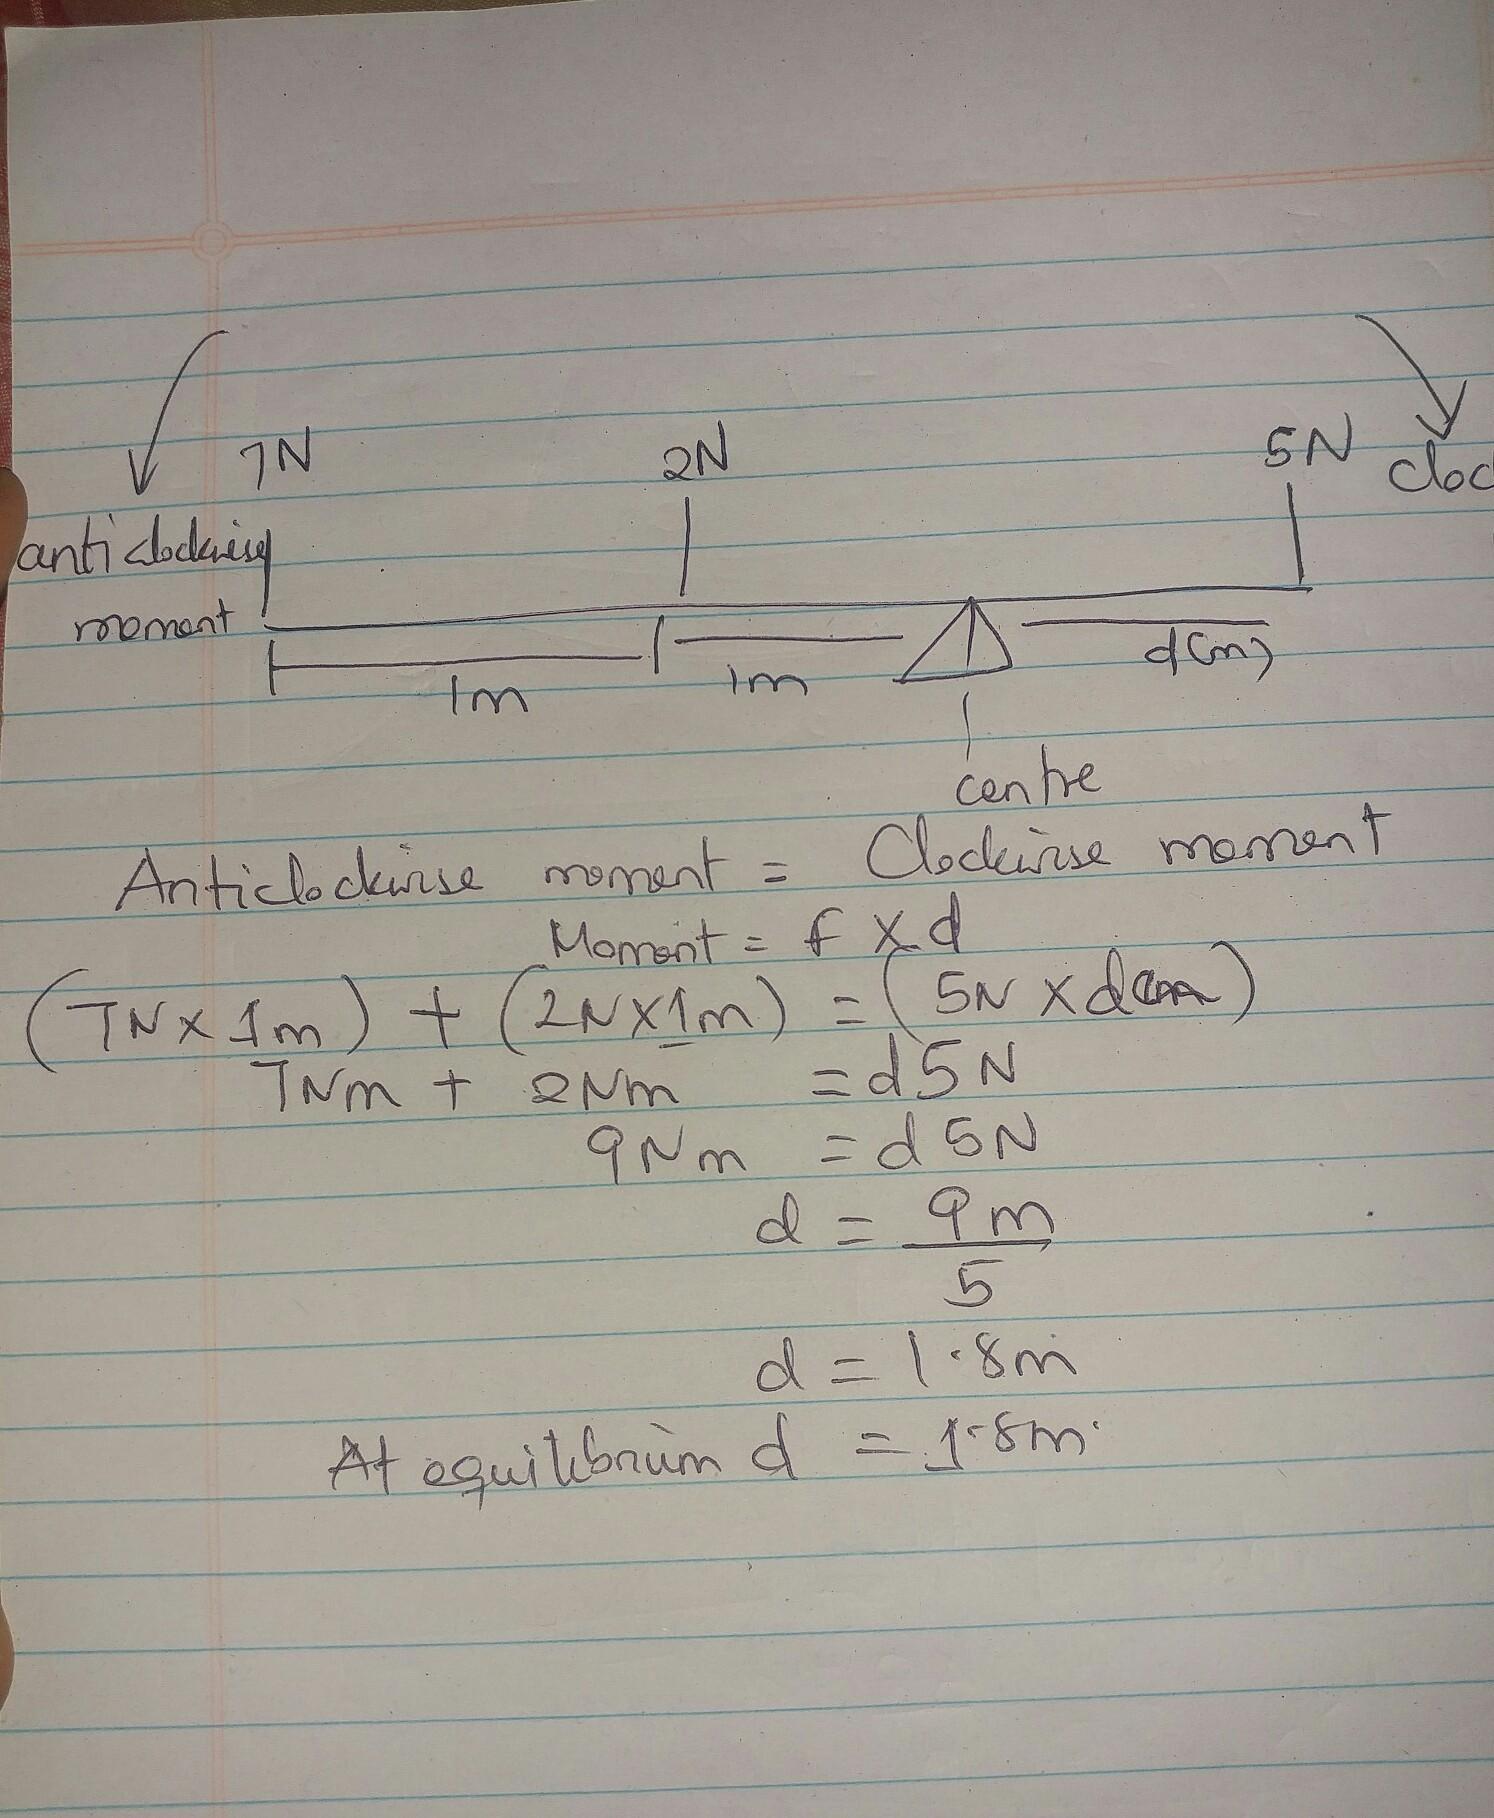 7N 2N 5N cloc
anticlockwise
moment
1m 1m d(m)
centre
Anticlockwise moment = Clockwise moment
Moment = f x d
(7N x 1m) + (2N x 1m) = (5N x dcm)
7Nm + 2Nm = d5N
9Nm = d5N
d = 9m
5
d = 1.8m
At equilibrium d = 1.8m.